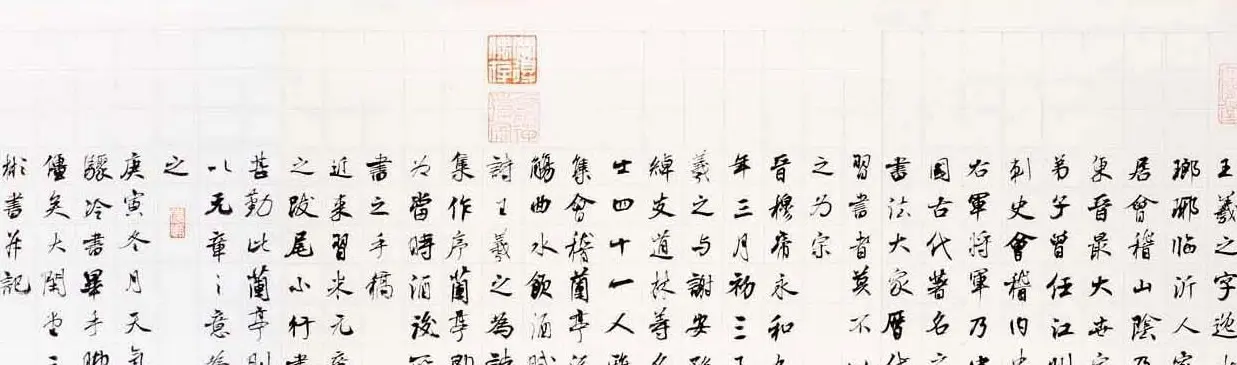 王羲之字逸
瑯琊临沂人
居會稽山陰乃
東晉最大世
弟子曾任江州
刺史會稽内史
右軍将軍乃
國古代著名
書法大家曆代
習書者莫不
之为宗
晉穆帝永和九
年三月初三
羲之与謝安孫
綽支道林等
廿四十一人
集會稽蘭亭
觴曲水飲酒賦
詩王羲之為
集作序蘭亭
为當時酒後
書之手稿
近来習米元章
之跋尾小行書
甚勤此蘭亭則
以元章之意
之
庚寅冬月天氣
驟冷書畢手脚
僵矣大閑堂
彬書并記